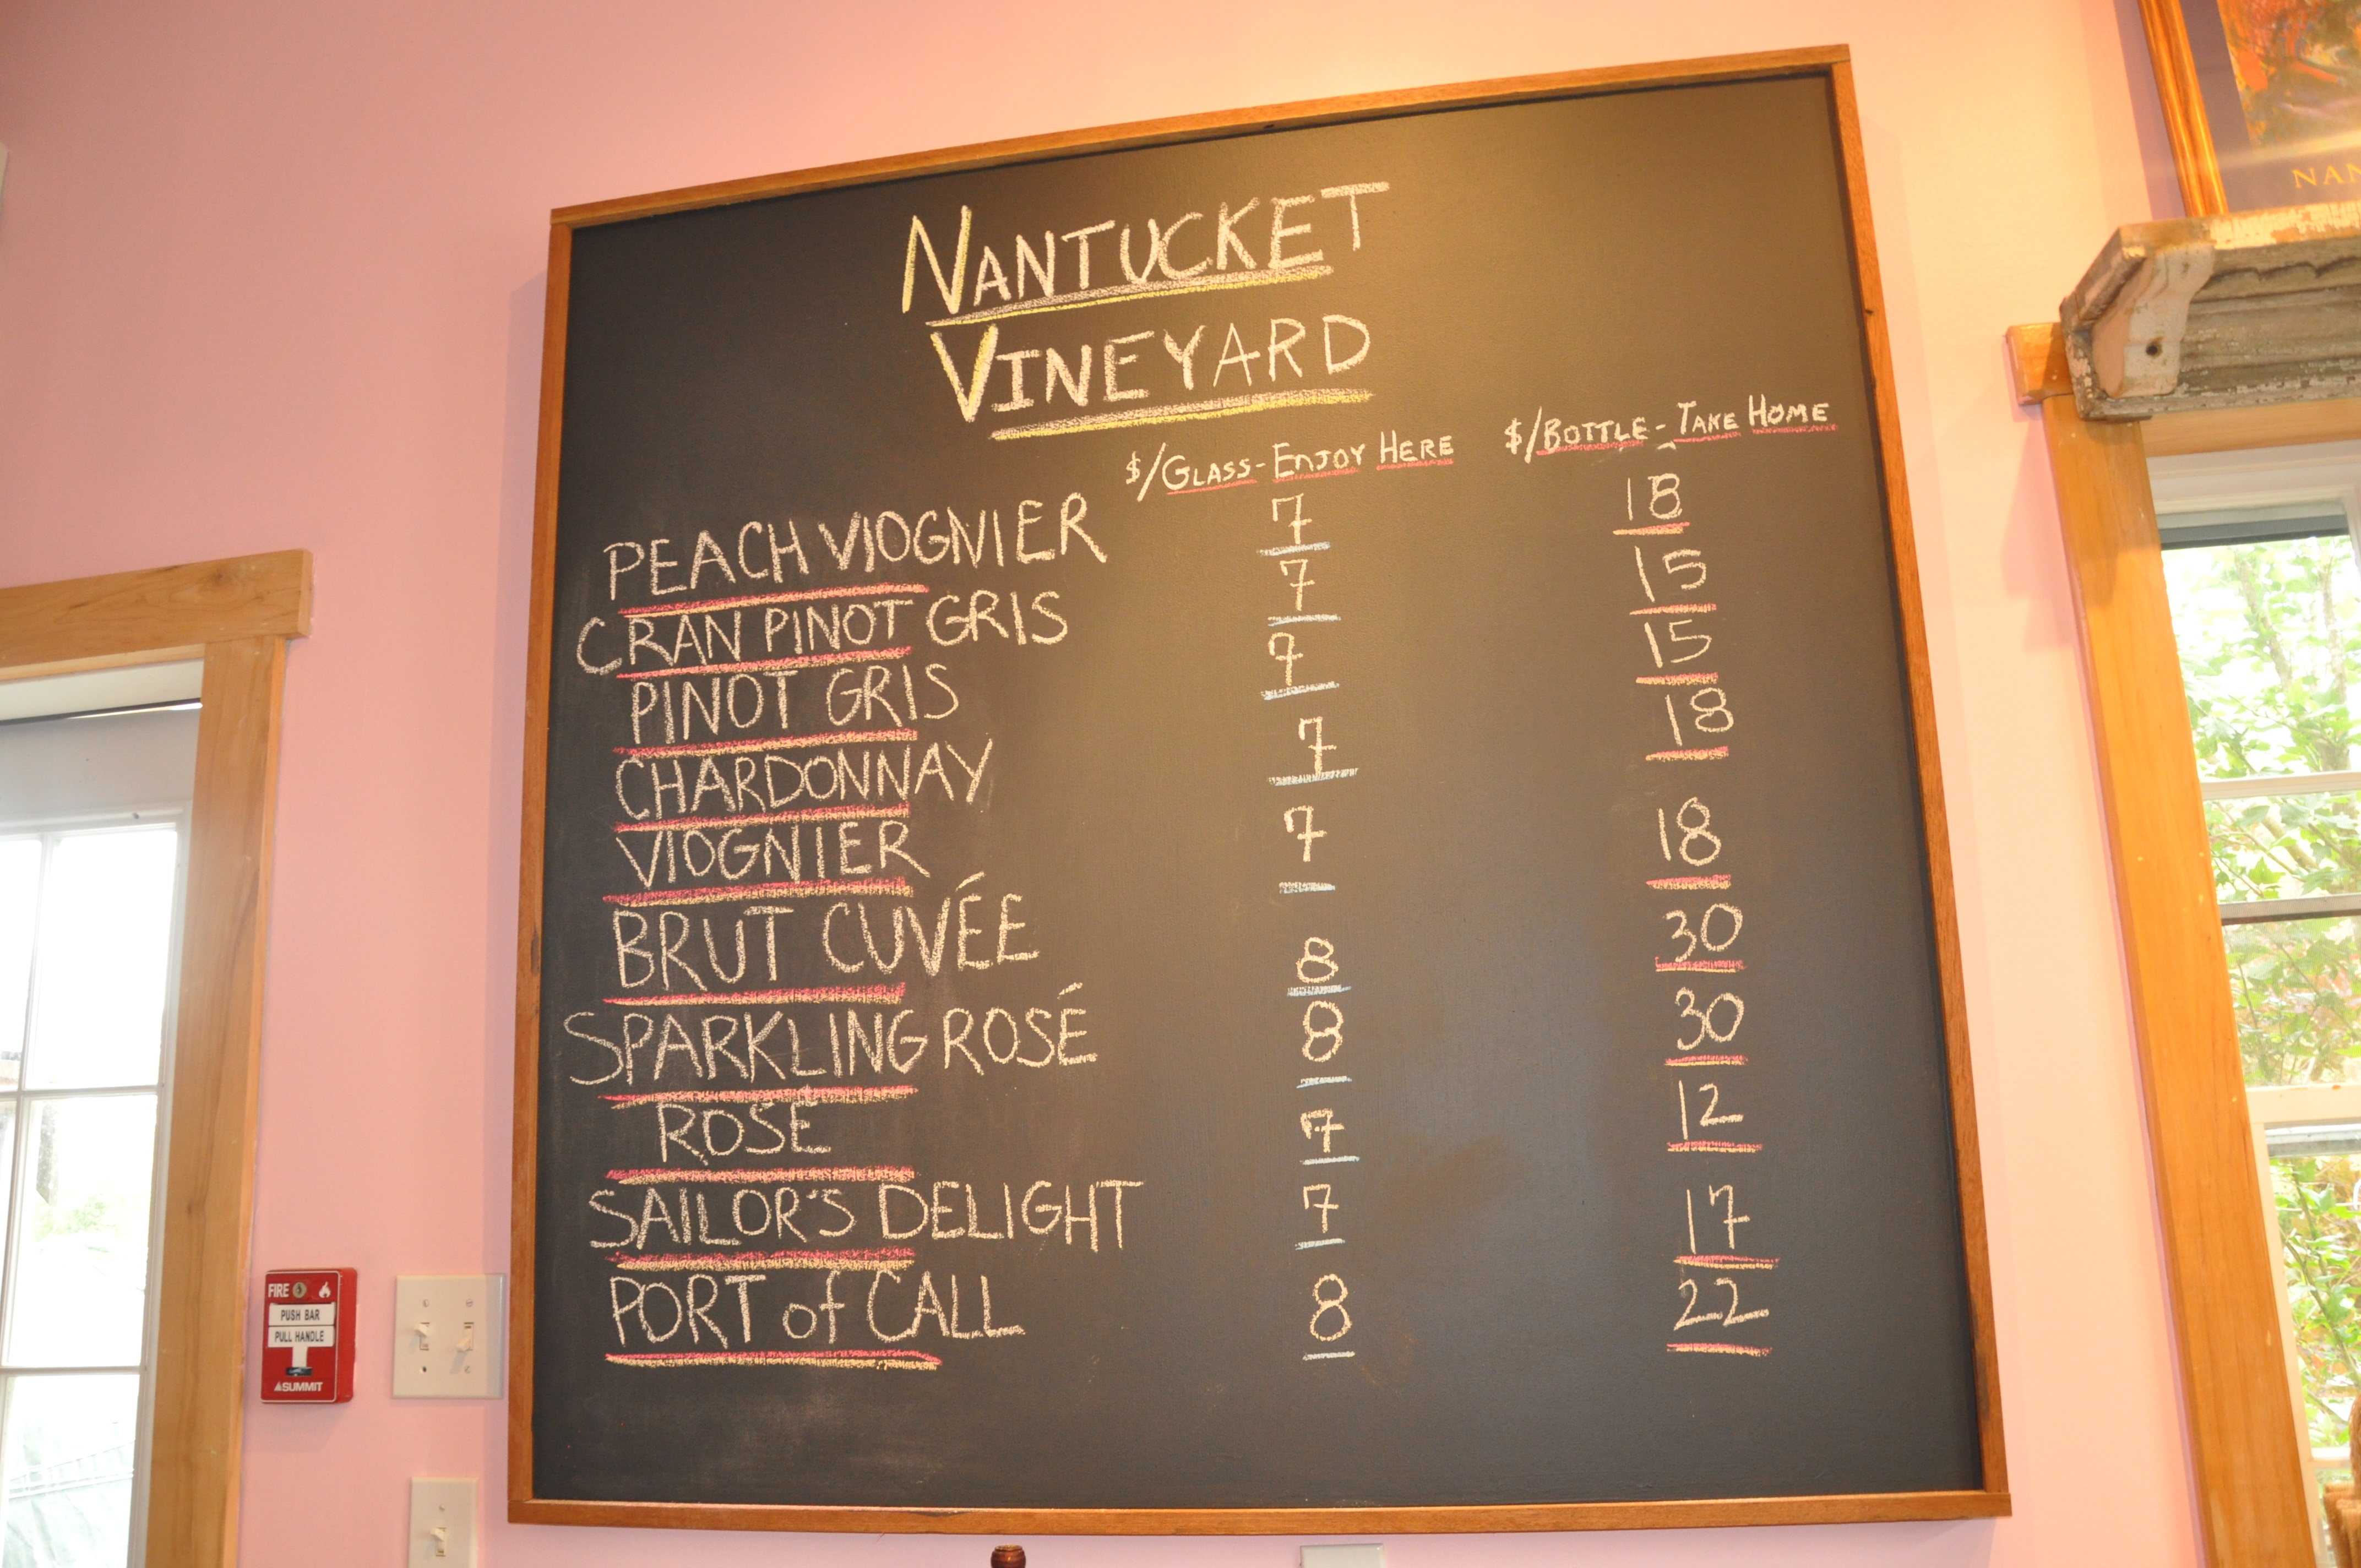 NANTUCKET
VINEYARD
$/GLASS-ENJOY HERE $/BOTTLE-TAKE HOME
PEACH VIOGNIER 7 18
CRAN PINOT GRIS 7 15
PINOT GRIS 7 15
CHARDONNAY 7 18
VIOGNIER 7 18
BRUT CUVÉE 8 30
SPARKLING ROSÉ 8 30
ROSÉ 7 12
SAILOR'S DELIGHT 7 17
PORT of CALL 8 22
FIRE
PUSH BAR
PULL HANDLE
SUMMIT